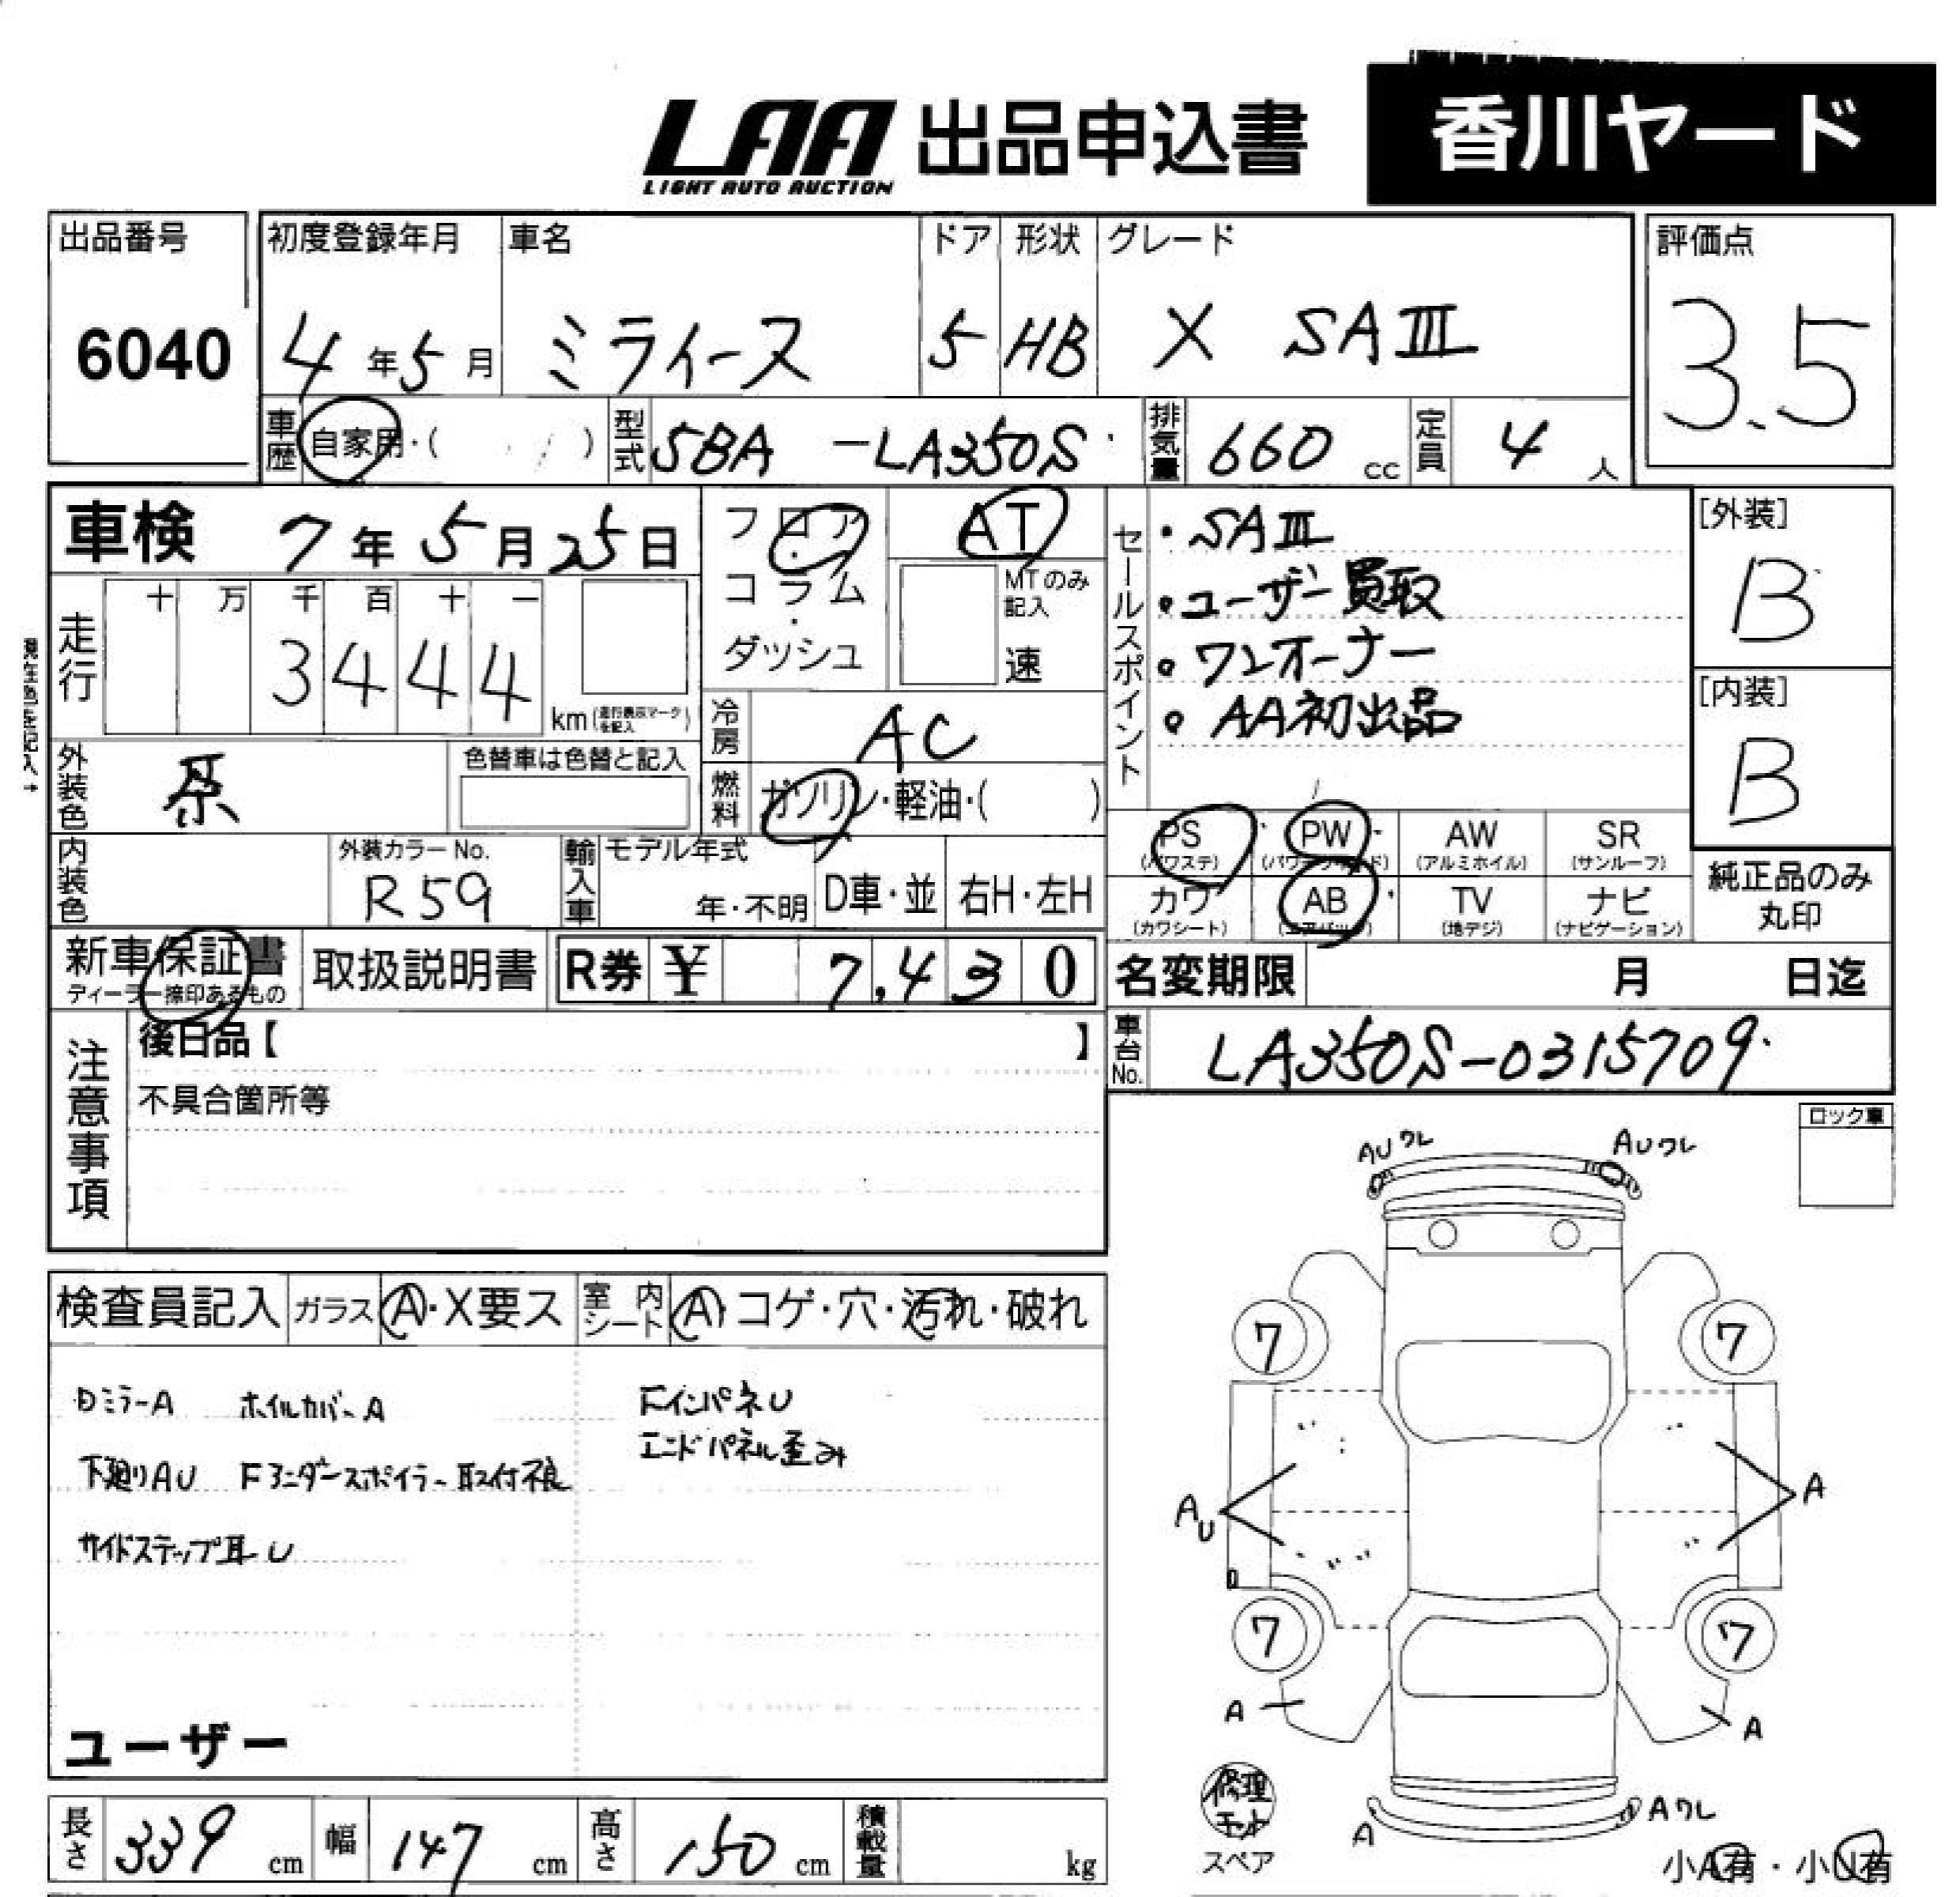 LAA 出品申込書 香川ヤード
LIGHT AUTO AUCTION
出品番号 初度登録年月 車名 ドア 形状 グレード 評価点
6040 4年5月 ミライース 5 HB X SAⅢ 3.5
車歴 自家用・( ) 型式 5BA-LA350S 排気量 660 cc 定員 4人
車検 7年5月25日
フロア・コラム・ダッシュ AT
MTのみ記入 速
セールスポイント
・SAⅢ
・ユーザー買取
・ワンオーナー
・AA初出品
[外装] B
[内装] B
現在色を記入→
走行 十 万 千 百 十 一
3444 km (走行表示マークを記入)
冷房 AC
外装色 茶 色替車は色替と記入
燃料 ガソリン・軽油・( )
PS (パワステ) PW (パワーウィンド) AW (アルミホイル) SR (サンルーフ)
カワ (カワシート) AB (エアバッグ) TV (地デジ) ナビ (ナビゲーション)
純正品のみ丸印
内装色 外装カラーNo. R59 輸入車 モデル年式 年・不明 D車・並 右H・左H
新車保証書 ディーラー捺印あるもの 取扱説明書 R券 ¥ 7,430
名変期限 月 日迄
車台No. LA350S-0315709
注意事項
後日品【 】
不具合箇所等
ロック車
AUワレ AUワレ
検査員記入 ガラス A・X要ス 室内シート A・コゲ・穴・汚れ・破れ
DミラーA ホイルカバーA FインパネU
エンドパネル歪み
下廻りAU Fアンダースポイラー取付不良
サイドステップ耳U
ユーザー
7 7
AU A
7 7
A A
修理キット
スペア
A Aワレ
小A有・小U有
長さ 339 cm 幅 147 cm 高さ 150 cm 積載量 kg